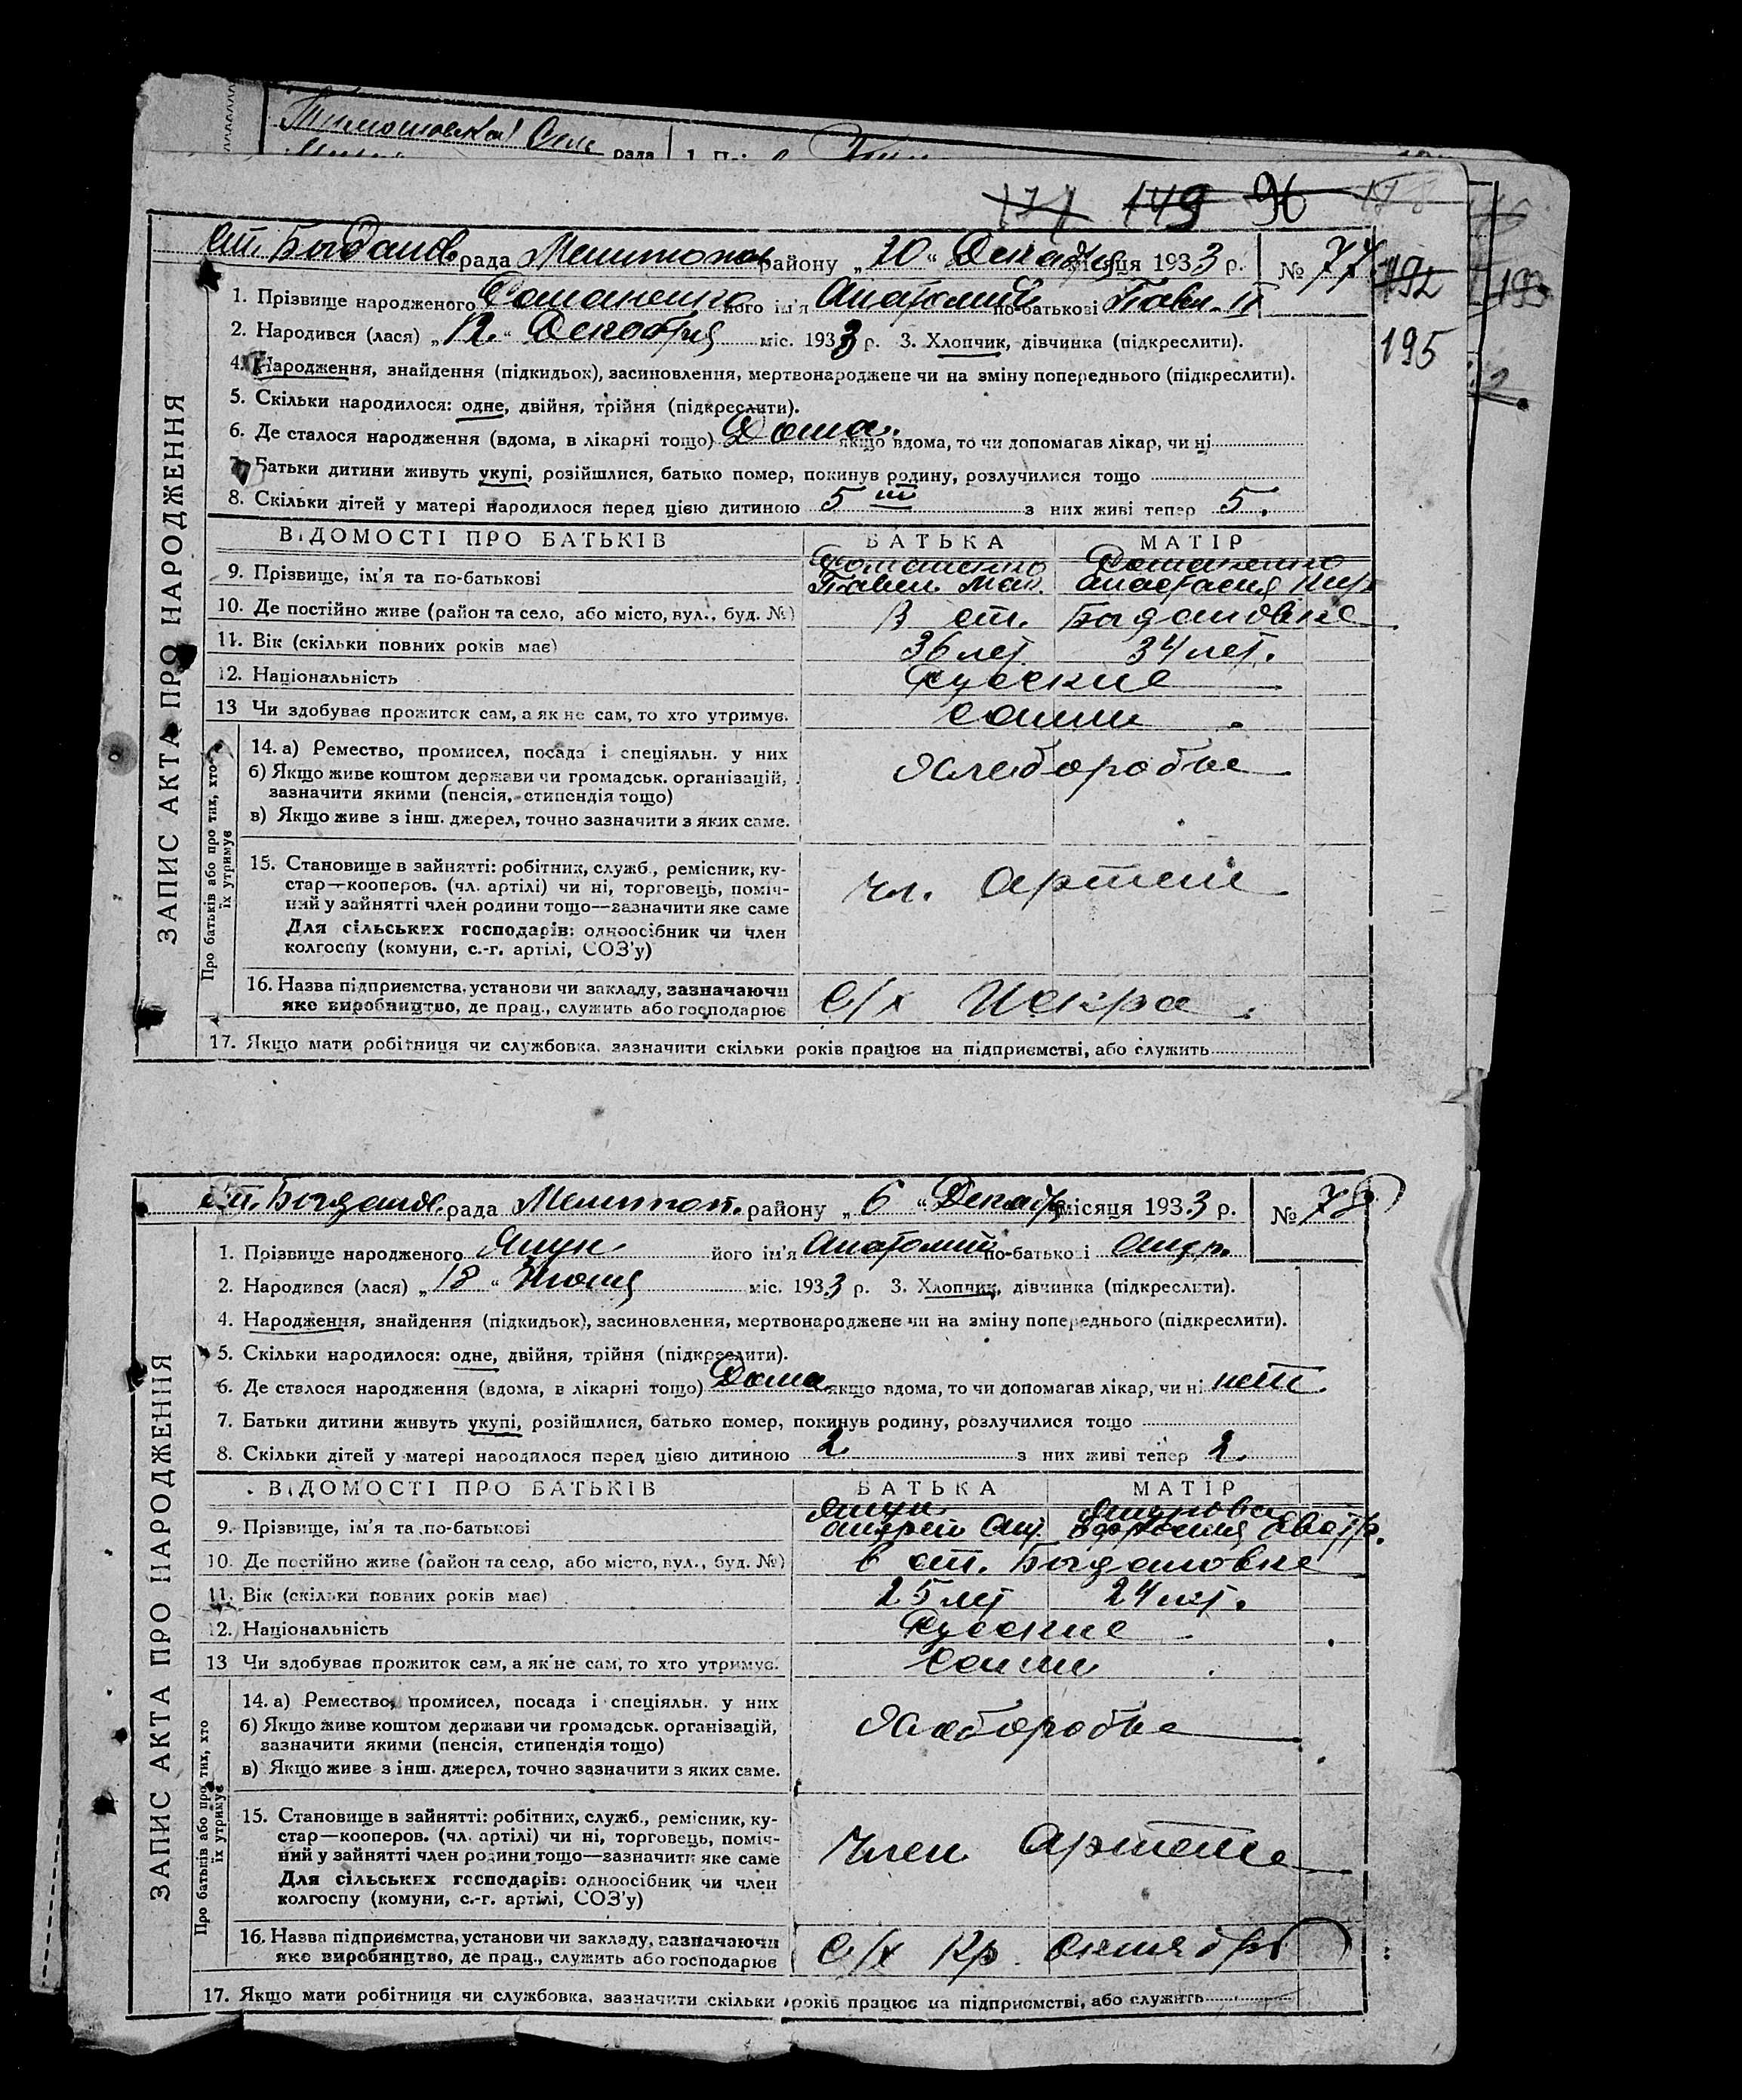 Тимошовская Сель рада
149 96
ст. Богданов. рада Мелитопол району „ 20 “ Декабря місяця 1933 р. № 77
192 193
1. Прізвище народженого Романенко його ім'я Анатолий по-батькові Павл.
2. Народився (лася) „ 12. “ Декабря міс. 1933 р. 3. Хлопчик, дівчинка (підкреслити).
195
4. Народження, знайдення (підкидьок), засиновлення, мертвонароджене чи на зміну попереднього (підкреслити).
5. Скільки народилося: одне, двійня, трійня (підкреслити).
6. Де сталося народження (вдома, в лікарні тощо) Дома. якщо вдома, то чи допомагав лікар, чи ні
7. Батьки дитини живуть укупі, розійшлися, батько помер, покинув родину, розлучилися тощо
8. Скільки дітей у матері народилося перед цією дитиною 5 з них живі тепер 5.
ВІДОМОСТІ ПРО БАТЬКІВ БАТЬКА МАТІР
Романенко Романенко
9. Прізвище, ім'я та по-батькові Павел Анастасия
10. Де постійно живе (район та село, або місто, вул., буд. №) В ст. Богдановке
11. Вік (скільки повних років має) 36 лет 34 лет.
12. Національність Русские
13 Чи здобуває прожиток сам, а як не сам, то хто утримує. Сами
14. а) Ремество, промисел, посада і спеціяльн. у них Хлеборобы
б) Якщо живе коштом держави чи громадськ. організацій,
зазначити якими (пенсія, стипендія тощо)
в) Якщо живе з інш. джерел, точно зазначити з яких саме.
15. Становище в зайнятті: робітник, служб., ремісник, ку-
стар—кооперов. (чл. артілі) чи ні, торговець, поміч- чл. Артели
ний у зайнятті член родини тощо—зазначити яке саме
Для сільських господарів: одноосібник чи член
колгоспу (комуни, с.-г. артілі, СОЗ'у)
16. Назва підприємства, установи чи закладу, зазначаючи С/х Искра.
яке виробництво, де прац., служить або господарює
17. Якщо мати робітниця чи службовка, зазначити скільки років працює на підприємстві, або служить
ЗАПИС АКТА ПРО НАРОДЖЕННЯ
Про батьків або про тих, хто
їх утримує
ст. Богданов. рада Мелитоп. району „ 6 “ Декабр місяця 1933 р. №
1. Прізвище народженого Яцун його ім'я Анатолий по-батькові Андр.
2. Народився (лася) „ 18 “ Июня міс. 1933 р. 3. Хлопчик, дівчинка (підкреслити).
4. Народження, знайдення (підкидьок), засиновлення, мертвонароджене чи на зміну попереднього (підкреслити).
5. Скільки народилося: одне, двійня, трійня (підкреслити).
6. Де сталося народження (вдома, в лікарні тощо) Дома якщо вдома, то чи допомагав лікар, чи ні нет
7. Батьки дитини живуть укупі, розійшлися, батько помер, покинув родину, розлучилися тощо
8. Скільки дітей у матері народилося перед цією дитиною 2 з них живі тепер 2.
ВІДОМОСТІ ПРО БАТЬКІВ БАТЬКА МАТІР
Яцун
9. Прізвище, ім'я та по-батькові Андрей
10. Де постійно живе (район та село, або місто, вул., буд. №) в ст. Богдановке
11. Вік (скільки повних років має) 25 лет 24 лет.
12. Національність Русские
13 Чи здобуває прожиток сам, а як не сам, то хто утримує. Сами
14. а) Ремество, промисел, посада і спеціяльн. у них
б) Якщо живе коштом держави чи громадськ. організацій, Хлеборобы
зазначити якими (пенсія, стипендія тощо)
в) Якщо живе з інш. джерел, точно зазначити з яких саме.
15. Становище в зайнятті: робітник, служб., ремісник, ку-
стар—кооперов. (чл. артілі) чи ні, торговець, поміч- Член Артели
ний у зайнятті член родини тощо—зазначити яке саме
Для сільських господарів: одноосібник чи член
колгоспу (комуни, с.-г. артілі, СОЗ'у)
16. Назва підприємства, установи чи закладу, зазначаючи С/х Кр. Октябрь
яке виробництво, де прац., служить або господарює
17. Якщо мати робітниця чи службовка, зазначити скільки років працює на підприємстві, або служить
ЗАПИС АКТА ПРО НАРОДЖЕННЯ
Про батьків або про тих, хто
їх утримує